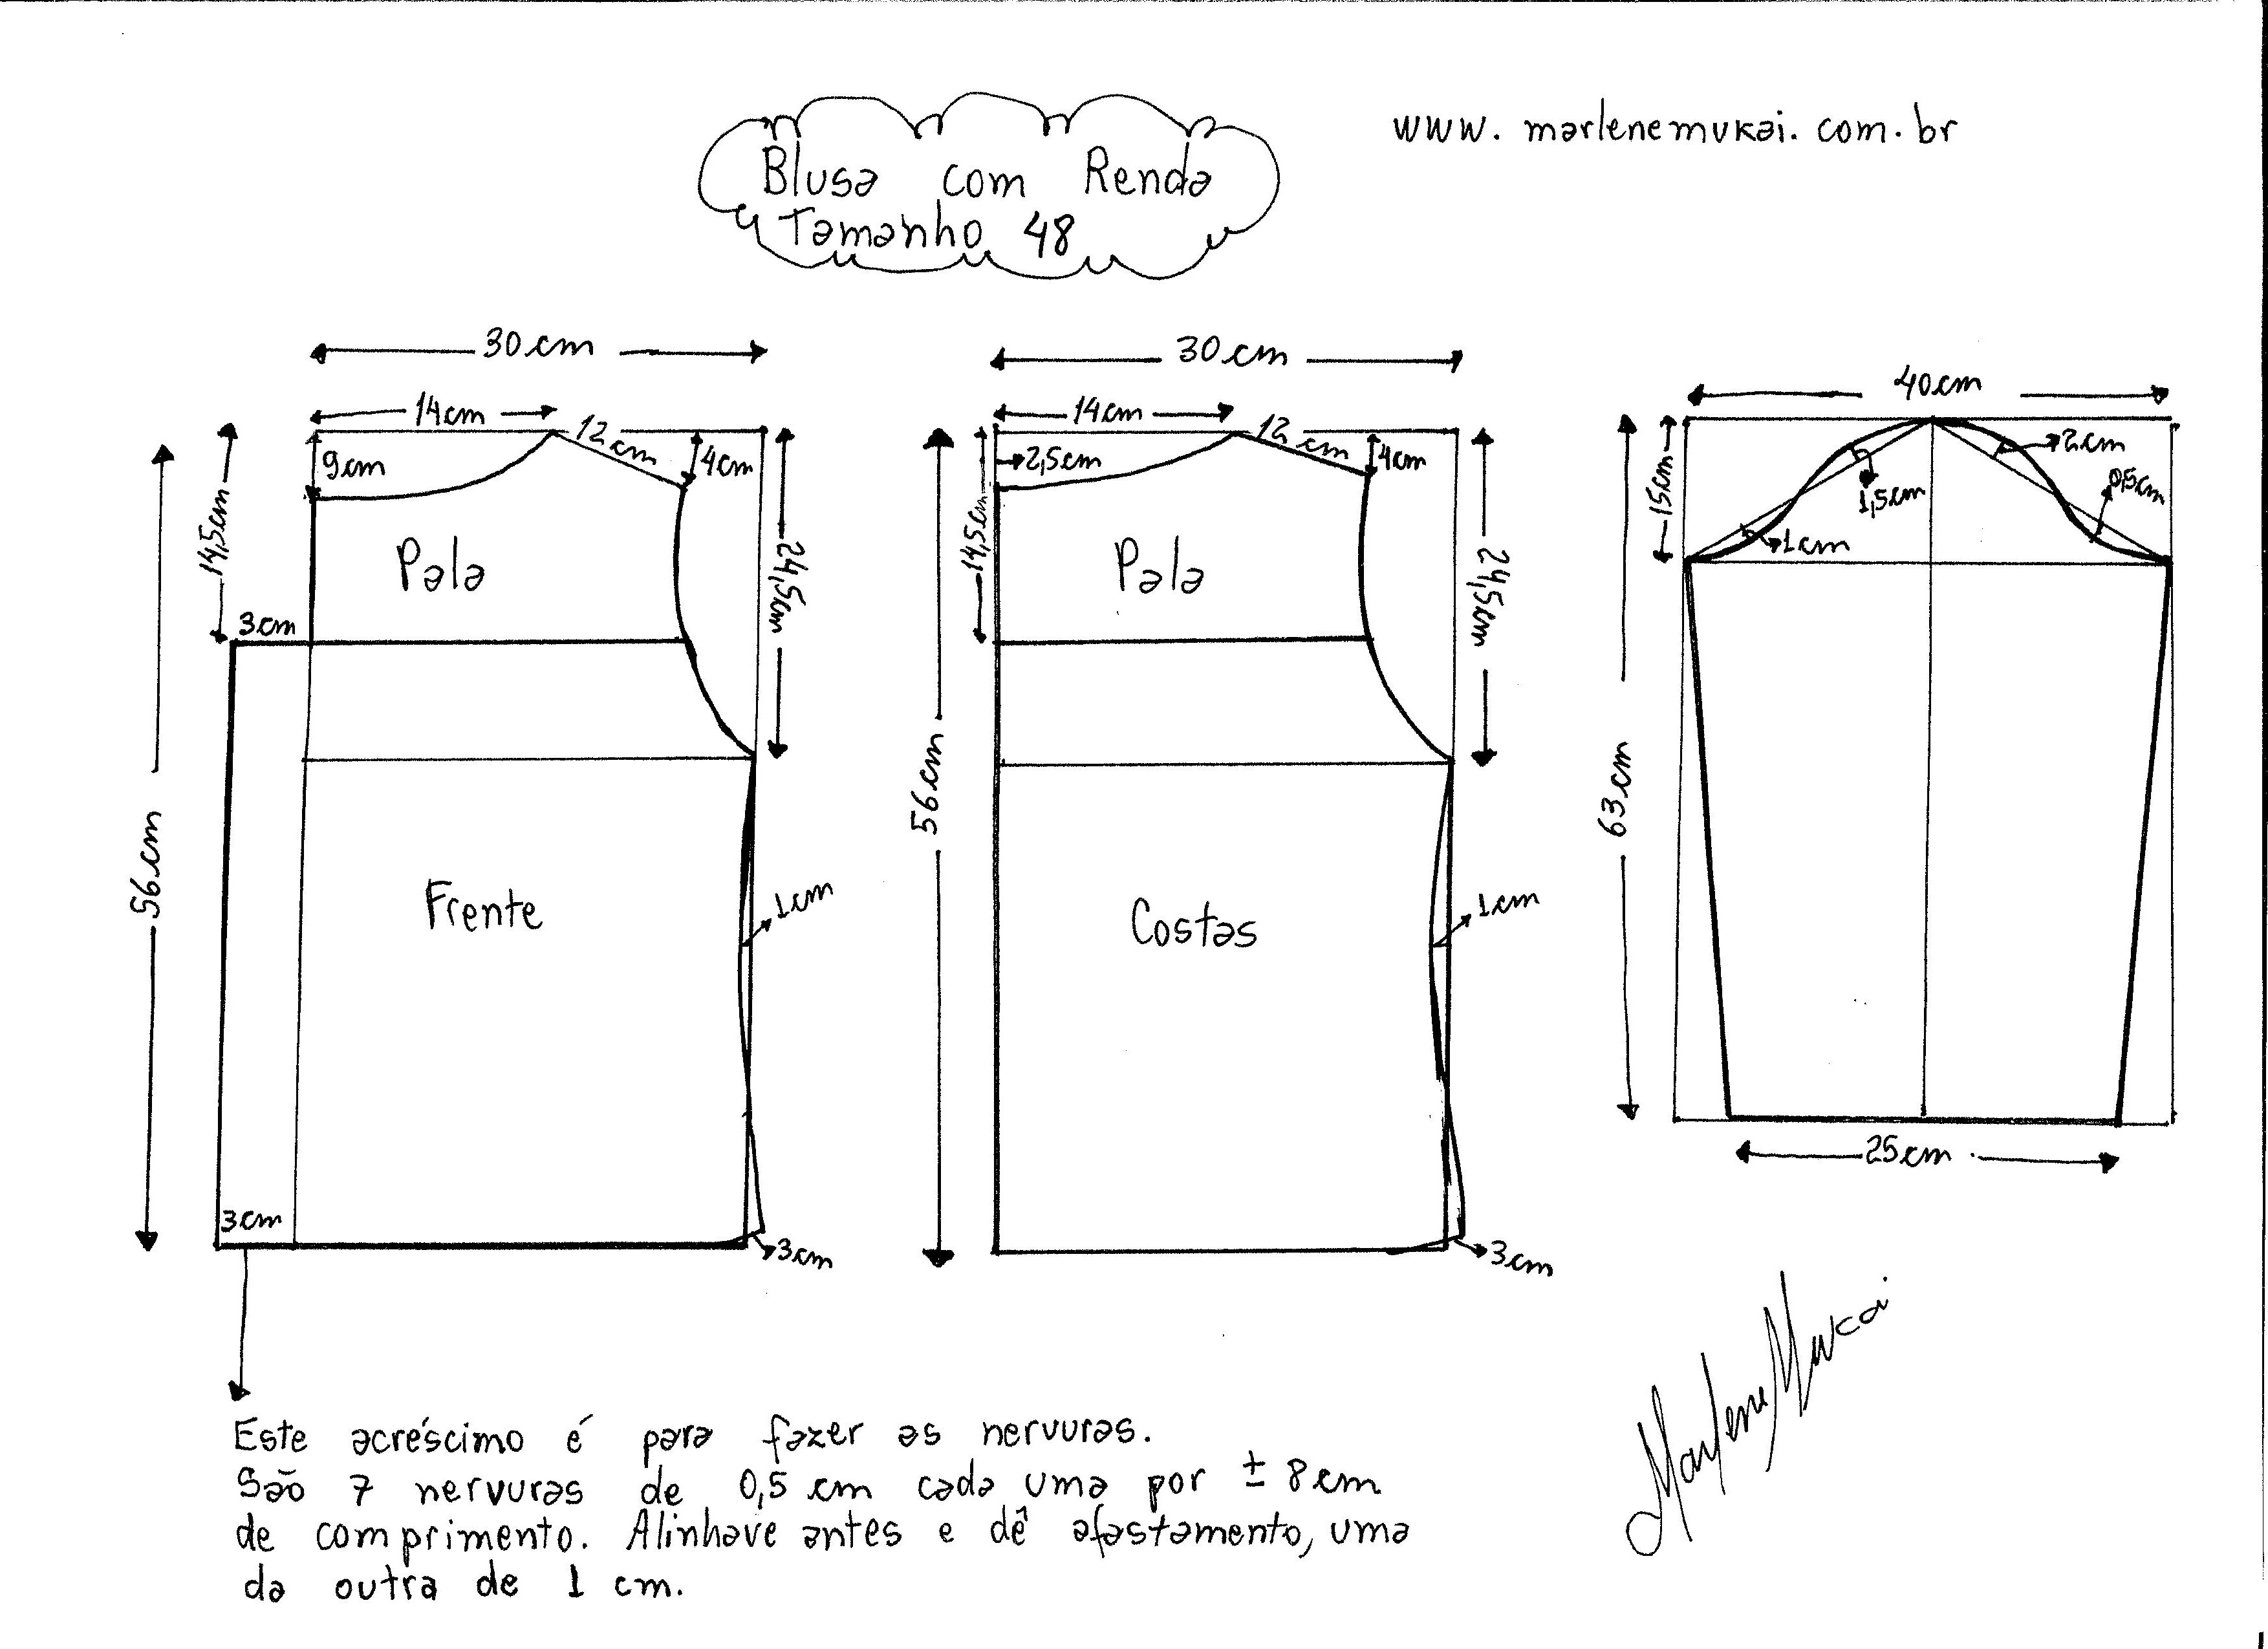 www.marlenemukai.com.br
Blusa com Renda
Tamanho 48
30cm
14cm
12cm
9cm
4cm
14,5cm
24,5cm
Pala
3cm
56cm
Frente
1cm
3cm
3cm
30cm
14cm
12cm
2,5cm
4cm
14,5cm
24,5cm
Pala
56cm
Costas
1cm
3cm
40cm
15cm
2cm
1,5cm
0,5cm
1cm
63cm
25cm
Este acréscimo é para fazer as nervuras.
São 7 nervuras de 0,5 cm cada uma por ± 8cm
de comprimento. Alinhave antes e dê afastamento, uma
da outra de 1 cm.
Marlene Mukai